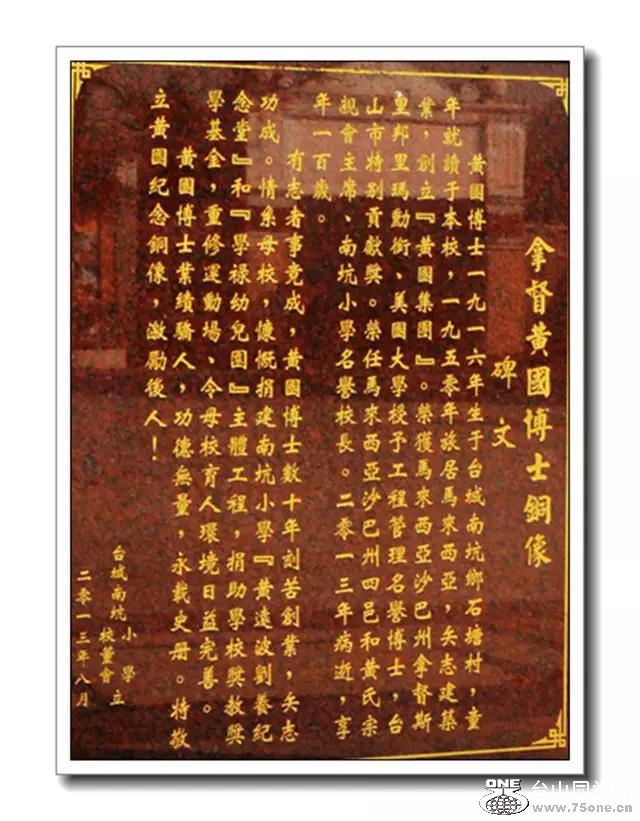 拿督黃國博士銅像
碑文
黃國博士一九一六年生于台城南坑鄉石塘村，童
年就讀于本校，一九五零年旅居馬來西亞，矢志建築
業，創立『黃國集團』。榮獲馬來西亞沙巴州拿督斯
里邦里瑪勳銜、美國大學授予工程管理名譽博士，台
山市特别貢獻獎。榮任馬來西亞沙巴州四邑和黃氏宗
親會主席、南坑小學名譽校長。二零一三年病逝，享
年一百歲。
有志者事竟成，黃國博士數十年刻苦創業，矢志
功成。情系母校，慷慨捐建南坑小學『黃遠波劉養紀
念堂』和『學禄幼兒園』主體工程，捐助學校獎教獎
學基金，重修運動場、令母校育人環境日益完善。
黃國博士業績驕人，功德無量，永載史册。特敬
立黃國紀念銅像，激勵後人！
台城南坑小學
校董會 立
二零一三年八月
ONE 台山同学网
www.75one.cn